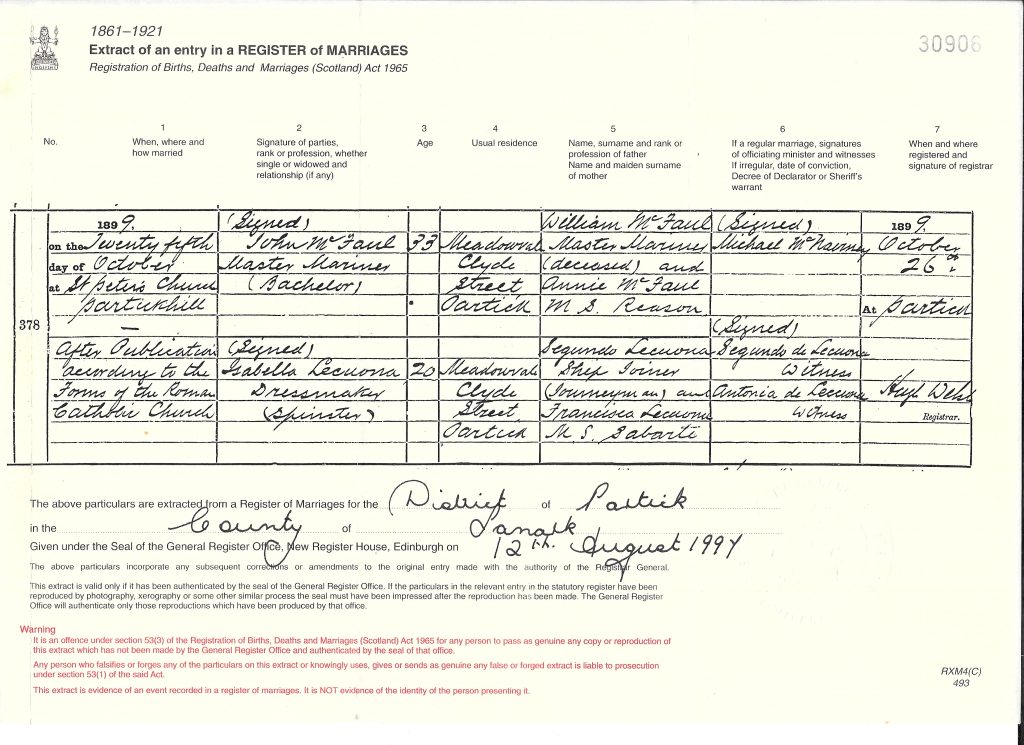 1861–1921
Extract of an entry in a REGISTER of MARRIAGES
Registration of Births, Deaths and Marriages (Scotland) Act 1965
30906
No.
1
When, where and
how married
2
Signature of parties,
rank or profession, whether
single or widowed and
relationship (if any)
3
Age
4
Usual residence
5
Name, surname and rank or
profession of father
Name and maiden surname
of mother
6
If a regular marriage, signatures
of officiating minister and witnesses
If irregular, date of conviction,
Decree of Declarator or Sheriff's
warrant
7
When and where
registered and
signature of registrar
378
1899.
on the Twenty fifth
day of October
at St Peter's Church
Partickhill
—
After Publication
according to the
Forms of the Roman
Catholic Church
(Signed)
John McFaul
Master Mariner
(Bachelor)
(Signed)
Isabella Lecuona
Dressmaker
(Spinster)
33
20
Meadowval
Clyde
Street
Partick
Meadowval
Clyde
Street
Partick
William McFaul
Master Mariner
(deceased) and
Annie McFaul
M.S. Reason
Segundo Lecuona
Ship Joiner
(Journeyman) and
Francisca Lecuona
M.S. Sabarte
(Signed)
Michael
(Signed)
Segundo de Lecuona
Witness
Antonia de Lecuona
Witness
1899.
October
26th.
At Partick
Hugh Welsh
Registrar.
The above particulars are extracted from a Register of Marriages for the District of Partick
in the County of Lanark
Given under the Seal of the General Register Office, New Register House, Edinburgh on 12th. August 1994
The above particulars incorporate any subsequent corrections or amendments to the original entry made with the authority of the Registrar General.
This extract is valid only if it has been authenticated by the seal of the General Register Office. If the particulars in the relevant entry in the statutory register have been
reproduced by photography, xerography or some other similar process the seal must have been impressed after the reproduction has been made. The General Register
Office will authenticate only those reproductions which have been produced by that office.
Warning
It is an offence under section 53(3) of the Registration of Births, Deaths and Marriages (Scotland) Act 1965 for any person to pass as genuine any copy or reproduction of
this extract which has not been made by the General Register Office and authenticated by the seal of that office.
Any person who falsifies or forges any of the particulars on this extract or knowingly uses, gives or sends as genuine any false or forged extract is liable to prosecution
under section 53(1) of the said Act.
This extract is evidence of an event recorded in a register of marriages. It is NOT evidence of the identity of the person presenting it.
RXM4(C)
493